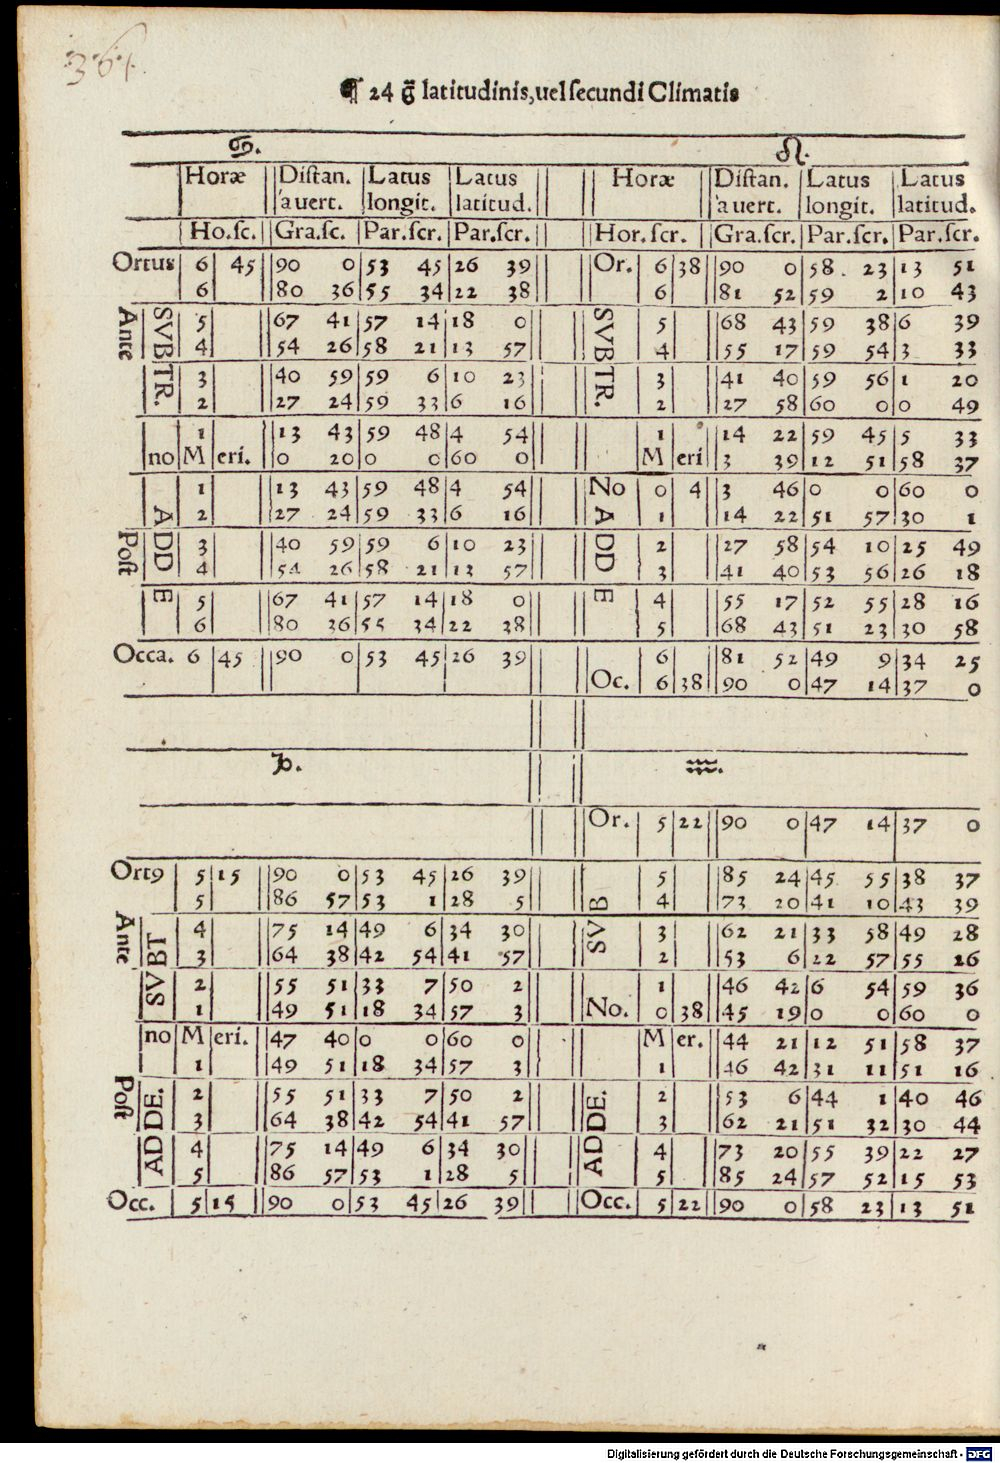 361.
¶ 24 g̃ latitudinis, uel secundi Climatis
♋. ♌.
Horæ Distan. Latus Latus Horæ Distan. Latus Latus
a uert. longit. latitud. a uert. longit. latitud.
Ho.sc. Gra.sc. Par.scr. Par.scr. Hor.scr. Gra.scr. Par.scr. Par.scr.
Ortus 6 45 90 0 53 45 26 39 Or. 6 38 90 0 58 23 13 51
6 80 36 55 34 22 38 6 81 52 59 2 10 43
Ante SVB 5 67 41 57 14 18 0 SVB 5 68 43 59 38 6 39
4 54 26 58 21 13 57 4 55 17 59 54 3 33
TR. 3 40 59 59 6 10 23 TR. 3 41 40 59 56 1 20
2 27 24 59 33 6 16 2 27 58 60 0 0 49
1 13 43 59 48 4 54 1 14 22 59 45 5 33
no M eri. 0 20 0 0 60 0 M eri 3 39 12 51 58 37
1 13 43 59 48 4 54 No 0 4 3 46 0 0 60 0
A 2 27 24 59 33 6 16 A 1 14 22 51 57 30 1
Post DD 3 40 59 59 6 10 23 DD 2 27 58 54 10 25 49
4 54 26 58 21 13 57 3 41 40 53 56 26 18
E 5 67 41 57 14 18 0 E 4 55 17 52 55 28 16
6 80 36 55 34 22 38 5 68 43 51 23 30 58
Occa. 6 45 90 0 53 45 26 39 6 81 52 49 9 34 25
Oc. 6 38 90 0 47 14 37 0
♑. ♒.
Or. 5 22 90 0 47 14 37 0
Ort9 5 15 90 0 53 45 26 39 5 85 24 45 55 38 37
5 86 57 53 1 28 5 B 4 73 20 41 10 43 39
Ante BT 4 75 14 49 6 34 30 SV 3 62 21 33 58 49 28
3 64 38 42 54 41 57 2 53 6 22 57 55 26
SV 2 55 51 33 7 50 2 1 46 42 6 54 59 36
1 49 51 18 34 57 3 No. 0 38 45 19 0 0 60 0
no M eri. 47 40 0 0 60 0 M er. 44 21 12 51 58 37
1 49 51 18 34 57 3 1 46 42 31 11 51 16
Post DE. 2 55 51 33 7 50 2 DE. 2 53 6 44 1 40 46
3 64 38 42 54 41 57 3 62 21 51 32 30 44
AD 4 75 14 49 6 34 30 AD 4 73 20 55 39 22 27
5 86 57 53 1 28 5 5 85 24 57 52 15 53
Occ. 5 15 90 0 53 45 26 39 Occ. 5 22 90 0 58 23 13 51
Digitalisierung gefördert durch die Deutsche Forschungsgemeinschaft - DFG